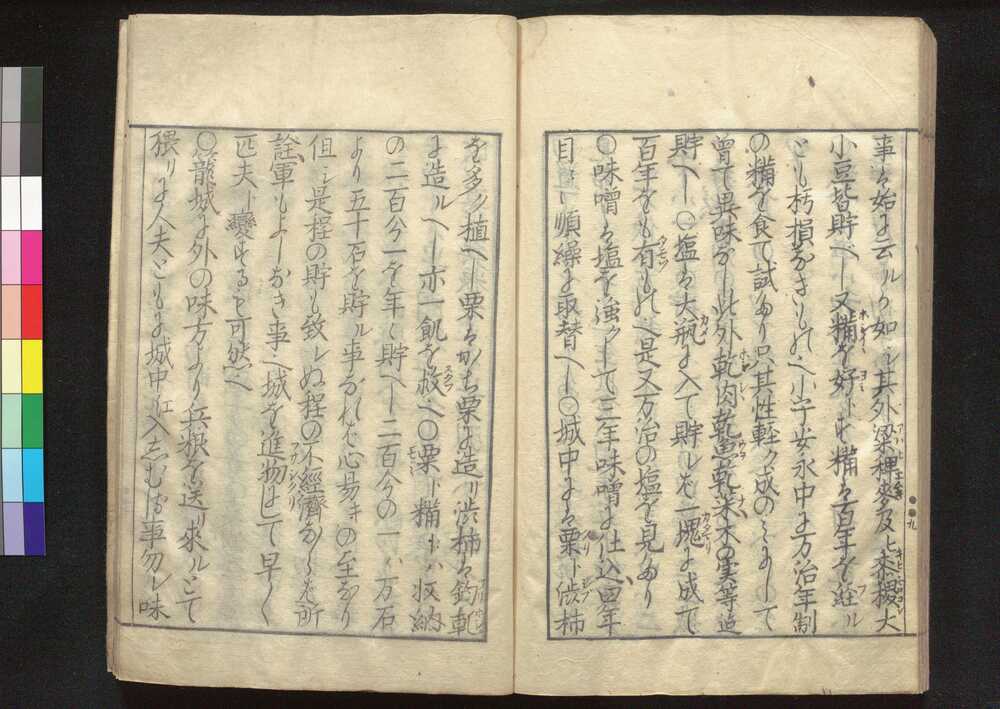 事ハ始に云ルか如シ其外梁稗麥及ヒ黍稷大
小豆皆貯ベー又糒を好トす糒ハ百年を経ル
とも朽損なきもの也小子安永中に万治年制
の糒を食て試たり只其性軽ク成のミにして
曽て異味なし此外乾肉乾魚乾菜木の実等迄
貯ベー〇塩ハ大瓶に入て貯レは一塊に成て
百年をも有もの也是又万治の塩を見たり
〇味噌ハ塩を強クして三年味噌に仕込四年
目ニ順繰に取替ベー〇城中にハ栗ト渋柿
を多ク植ベー栗ハかち栗に造リ渋柿ハ釣乾
に造ルベー亦一飢を救ベ〇粟ト糒トハ収納
の二百分一を年々貯ベー二百分の一ハ万石
より五十石を貯ル事なれは心易キの至なり
但シ是程の貯も致レぬ程の不經濟ならは所
詮軍もよーなき事也城を進物にして早ーく
匹夫ト變するも可然也
〇籠城に外の味方より兵粮を送リ來ルとて
猥リに人夫ともを城中江入しむる事勿レ味